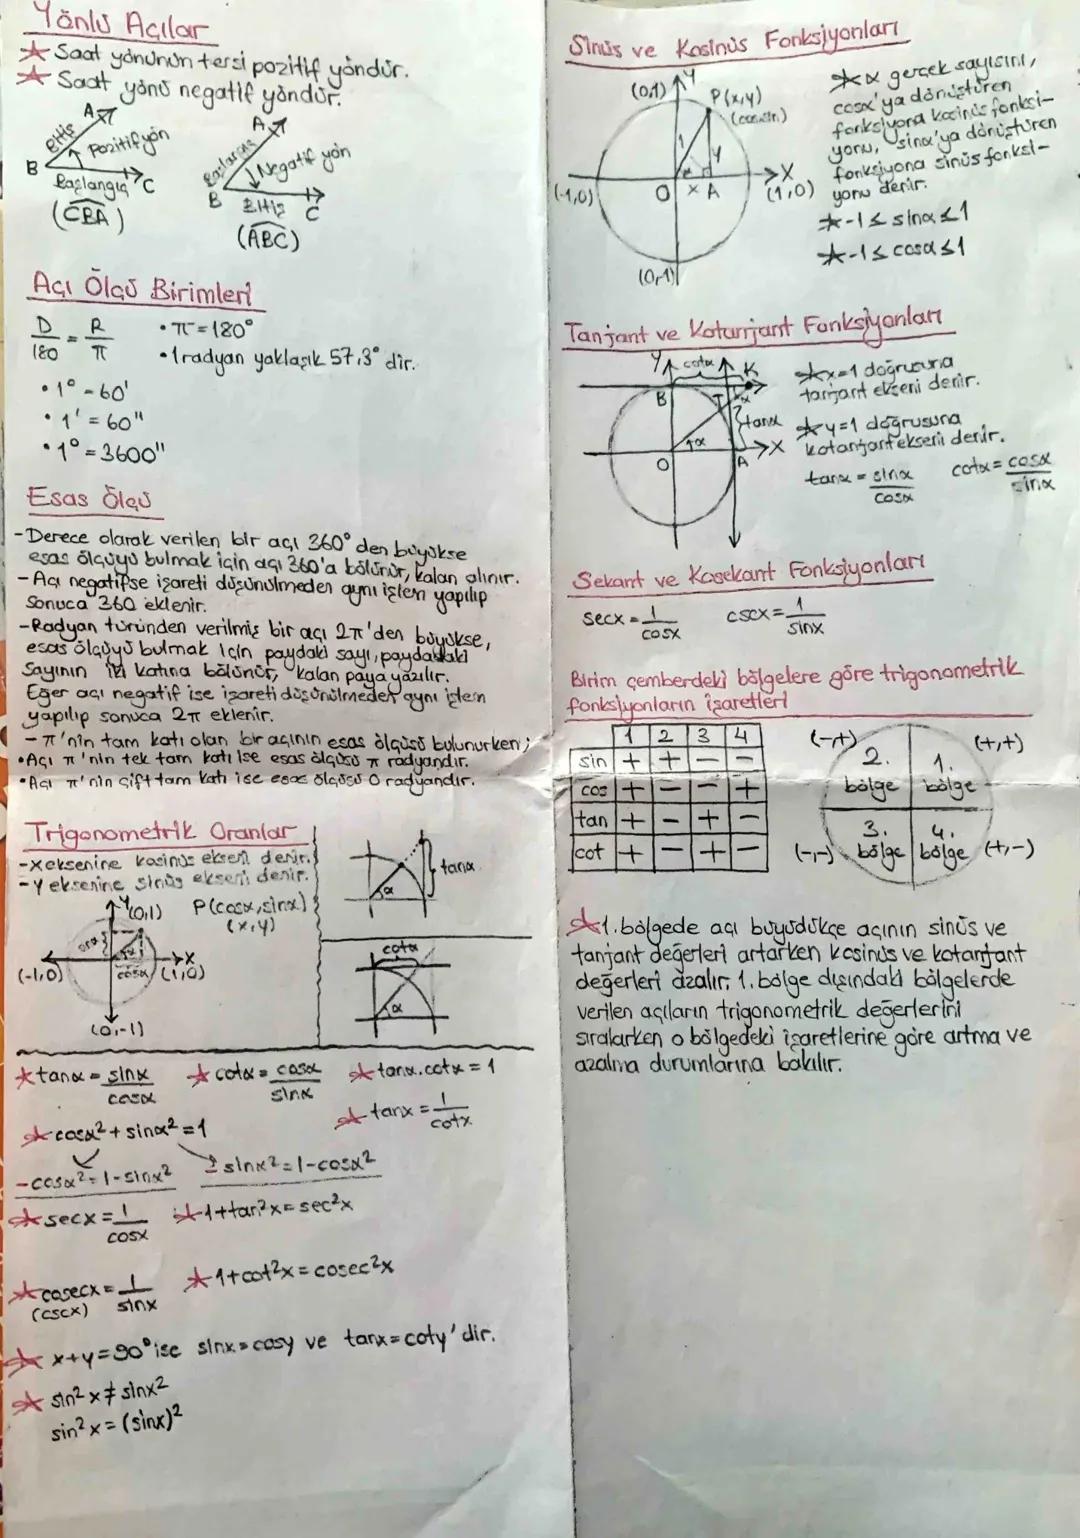 Yönlü Açılar
★ Saat yönünün tersi pozitif yöndür.
★ Saat yönü negatif yöndür.
A
Bitiş
Pozitif yön
B
Başlangıç
C
(CBA)
A
Başlangıç
Negatif yön
B
Bitiş
C
(ABC)
Açı Ölçü Birimleri
D/180 = R/π
• π = 180°
• 1 radyan yaklaşık 57,3° dir.
• 1° = 60'
• 1' = 60"
• 1° = 3600"
Esas Ölçü
- Derece olarak verilen bir açı 360° den büyükse
esas ölçüyü bulmak için açı 360'a bölünür, kalan alınır.
- Açı negatifse işareti düşünülmeden aynı işlem yapılıp
sonuca 360 eklenir.
- Radyan türünden verilmiş bir açı 2π'den büyükse,
esas ölçüyü bulmak için paydaki sayı, paydadaki
sayının iki katına bölünür, kalan paya yazılır.
Eğer açı negatif ise işareti düşünülmeden aynı işlem
yapılıp sonuca 2π eklenir.
- π'nin tam katı olan bir açının esas ölçüsü bulunurken;
• Açı π'nin tek tam katı ise esas ölçüsü π radyandır.
• Açı π'nin çift tam katı ise esas ölçüsü 0 radyandır.
Trigonometrik Oranlar
- X eksenine kosinüs ekseni denir.
- Y eksenine sinüs ekseni denir.
Y
(0,1)
P(cosx, sinx)
(x,y)
X
(-1,0)
cosα
(1,0)
(0,-1)
α
tanα
cotα
α
★ tanα = sinα/cosα
★ cotα = cosα/sinα
★ tanx.cotx = 1
★ tanx = 1/cotx
★ cosα² + sinα² = 1
- cosα² = 1 - sinx²
sinx² = 1 - cosx²
★ secx = 1/cosx
★ 1 + tan²x = sec²x
★ cosecx = 1/sinx
(cscx)
★ 1 + cot²x = cosec²x
★ x+y = 90° ise sinx = cosy ve tanx = coty'dir.
★ sin²x ≠ sinx²
sin²x = (sinx)²
Sinüs ve Kosinüs Fonksiyonları
(0,1)
Y
P(x,y)
(cos,sin)
1
Y
X
(-1,0)
O
x
A
(1,0)
(0,-1)
★ α gerçek sayısını,
cosα'ya dönüştüren
fonksiyona kosinüs fonksi-
yonu, sinα'ya dönüştüren
fonksiyona sinüs fonksi-
yonu denir.
★ -1 ≤ sinα ≤ 1
★ -1 ≤ cosα ≤ 1
Tanjant ve Kotanjant Fonksiyonları
Y
cotα
K
B
T
α
tanα
α
X
O
A
★ x=1 doğrusuna
tanjant ekseni denir.
★ y=1 doğrusuna
kotanjant ekseni denir.
tanα = sinα/cosα
cotα = cosα/sinα
Sekant ve Kosekant Fonksiyonları
secx = 1/cosx
cscx = 1/sinx
Birim çemberdeki bölgelere göre trigonometrik
fonksiyonların işaretleri
1 2 3 4
sin + + - -
cos + - - +
tan + - + -
cot + - + -
(-,+)
(+,+)
2. bölge
1. bölge
3. bölge
4. bölge
(-,-)
(+,-)
★ 1. bölgede açı büyüdükçe açının sinüs ve
tanjant değerleri artarken kosinüs ve kotanjant
değerleri azalır. 1. bölge dışındaki bölgelerde
verilen açıların trigonometrik değerlerini
sıralarken o bölgedeki işaretlerine göre artma ve
azalma durumlarına bakılır.